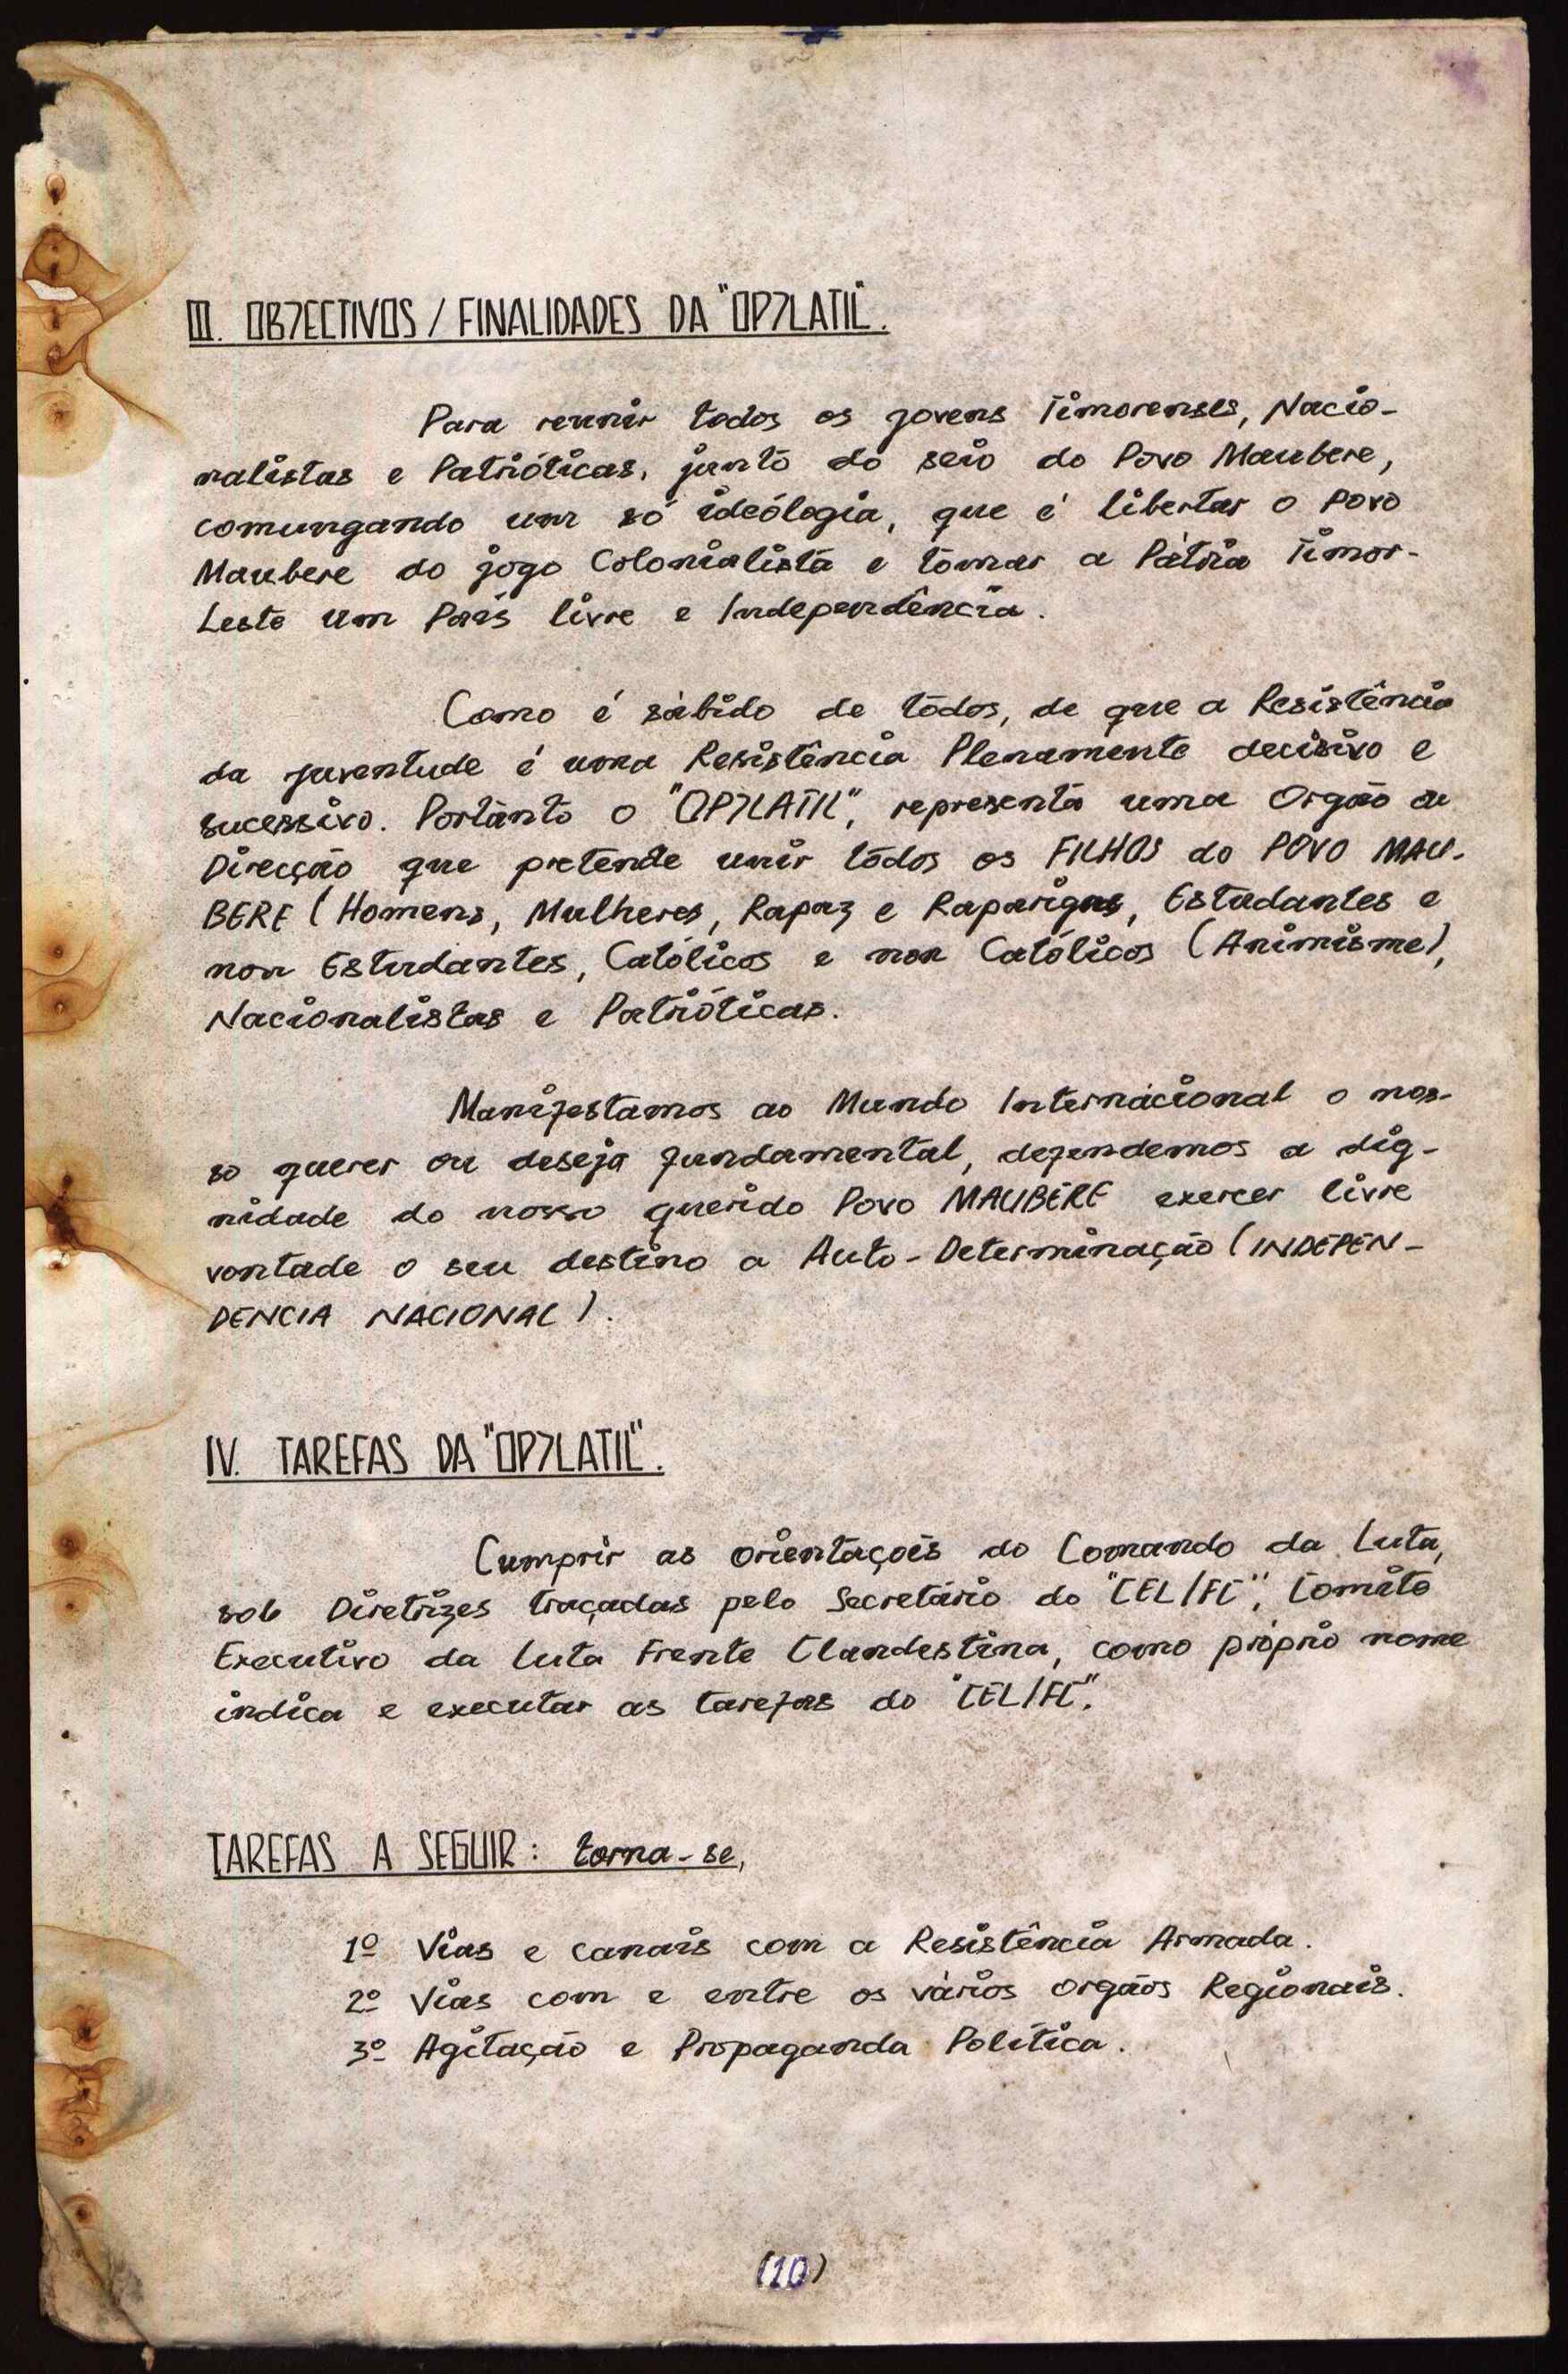 III. OBJECTIVOS / FINALIDADES DA "OPJLATIL".
Para reunir todos os jovens Timorenses, Nacio-
nalistas e Patrióticas, junto do seio do Povo Maubere,
comungando um só ideólogia, que é libertar o Povo
Maubere do jogo Colonialista e tornar a Pátria Timor-
Leste um País livre e Independência.
Como é sàbido de todos, de que a Resistência
da juventude é uma Resistência Plenamente decisivo e
sucessivo. Portanto o "OPJLATIL", representa uma Orgão de
Direcção que pretende unir todos os FILHOS do POVO MAU-
BERE (Homens, Mulheres, Rapaz e Raparigas, Estudantes e
non Estudantes, Católicos e non Católicos (Animisme),
Nacionalistas e Patrióticas.
Manifestamos ao Mundo Internacional o nos-
so querer ou deseja fundamental, defendemos a dig-
nidade do nosso querido Povo MAUBERE exercer livre
vontade o seu destino a Auto-Determinação (INDEPEN-
DENCIA NACIONAL).
IV. TAREFAS DA "OPJLATIL".
Cumprir as orientaçoẽs do Comando da Luta,
sob Diretrizes traçadas pelo Secretário do "CEL/FC", Comite
Executivo da Luta Frente Clandestina, como próprio nome
indica e executar as tarefas do "CEL/FC".
TAREFAS A SEGUIR: torna-se,
1º Vias e canais com a Resistência Armada.
2º Vias com e entre os vàrios orgãos Regionais.
3º Agitação e Propaganda Politica.
(10)